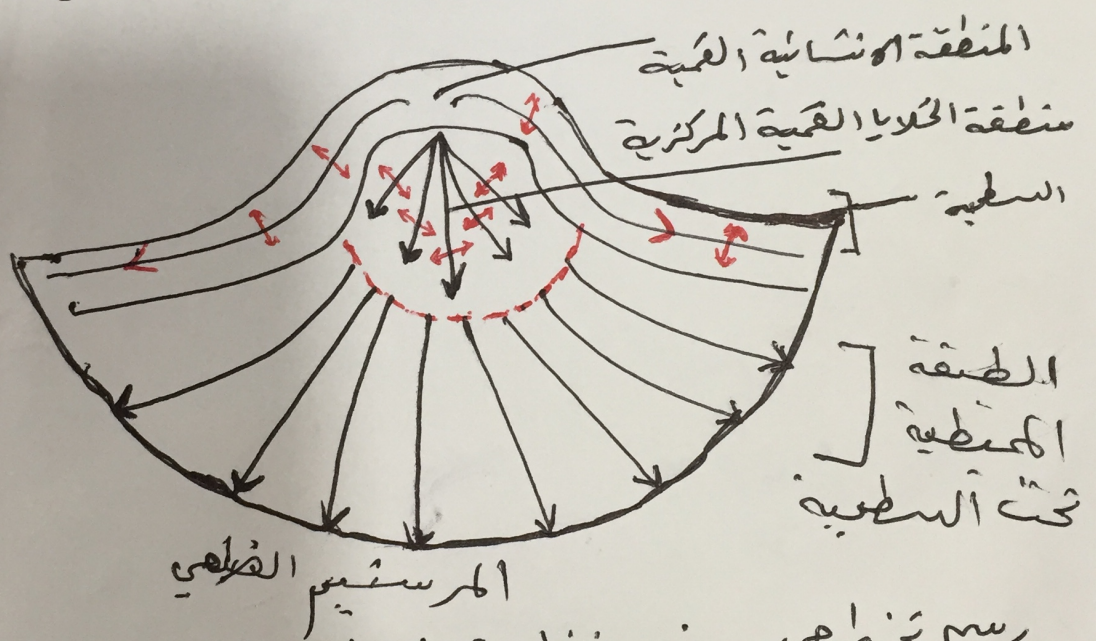 المنطقة الانشائية القمية
منطقة الخلايا القمية المركزية
السطحية
الطبقة
المحيطية
تحت السطحية
المرستيم
رسم